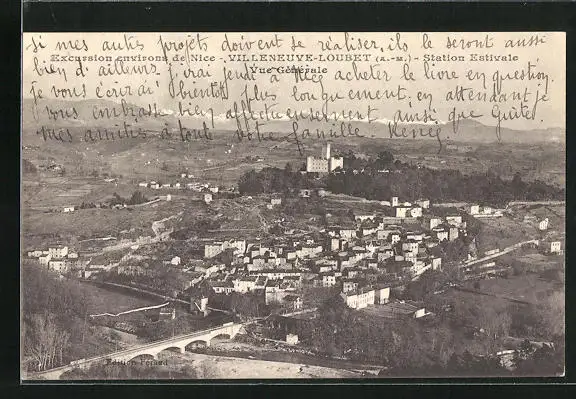 si mes autres projets doivent se réaliser, ils le seront aussi
Excursion environs de Nice - VILLENEUVE-LOUBET (A.-M.) - Station Estivale
bien d'ailleurs. j'irai jeudi à Nice acheter le livre en question.
Vue Générale
je vous écrirai bientôt plus longuement. en attendant je
vous embrasse bien affectueusement ainsi que
mes amitiés à tous votre famille
Edition Giraud